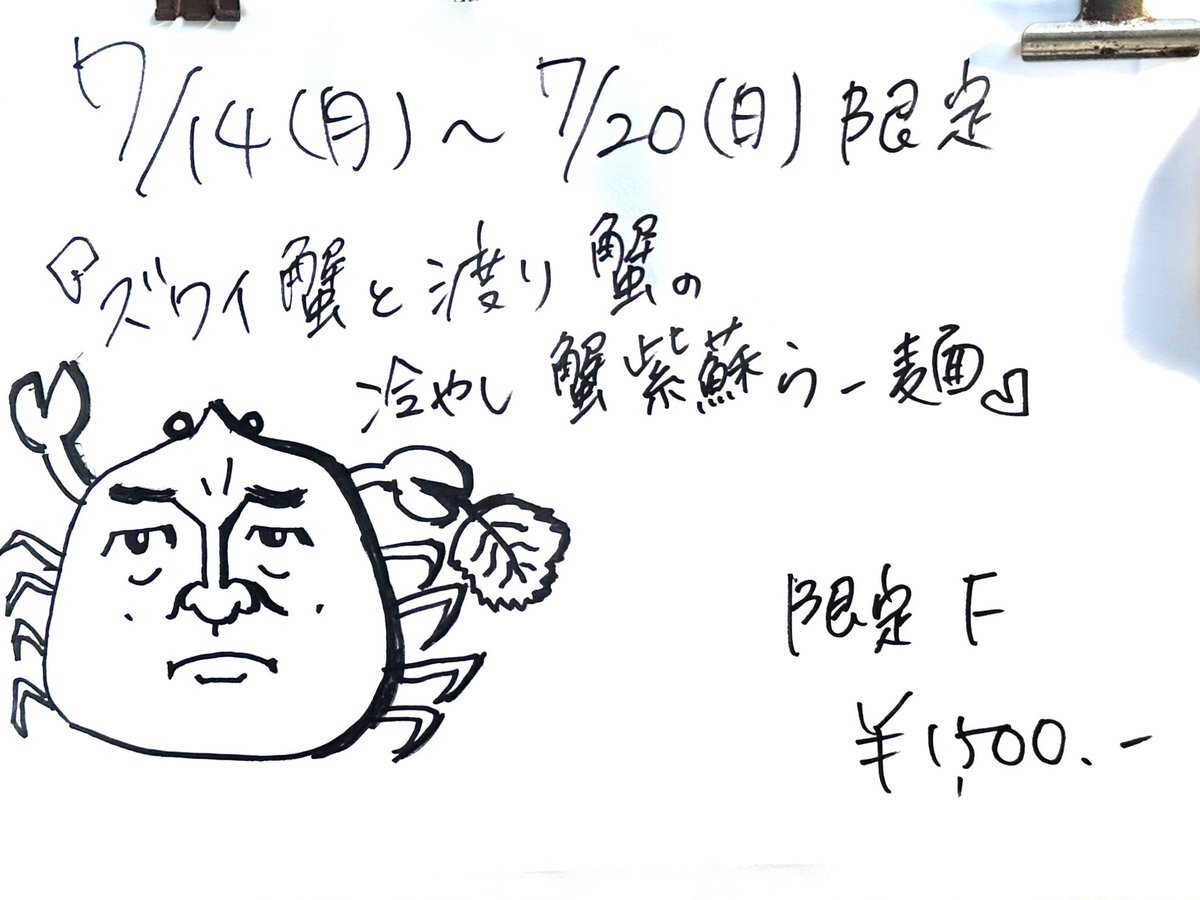 7/14(月)～7/20(日)限定
『ズワイ蟹と渡り蟹の
冷やし蟹紫蘇らー麺』
限定F
¥1,500.-